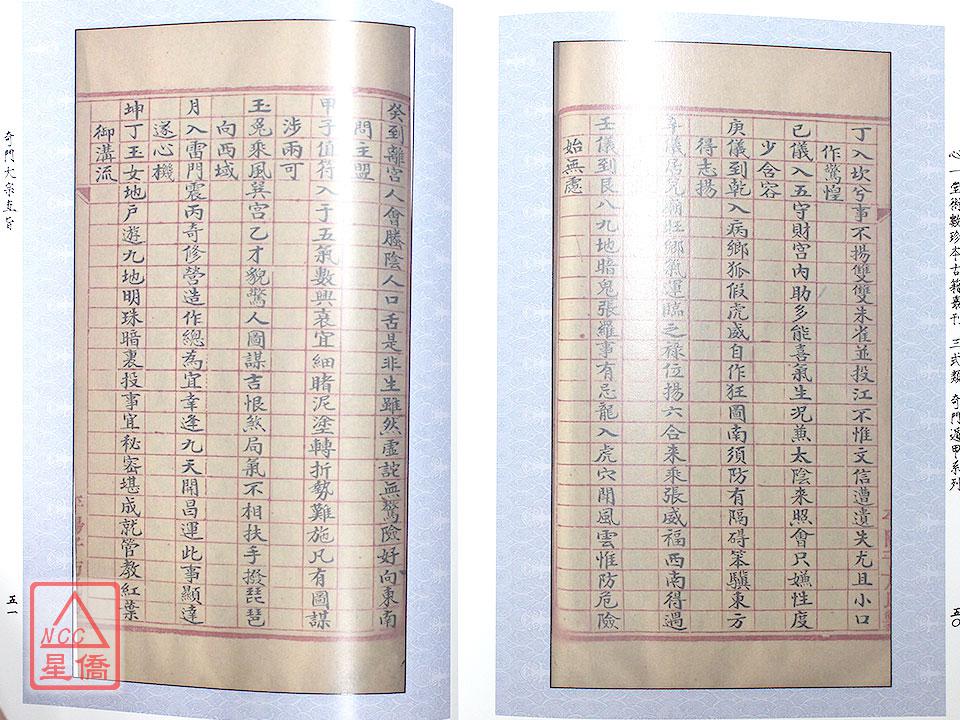 心一堂術數珍本古籍叢刊 三式類 奇門遁甲系列
五〇
丁入坎兮事不揚雙雙朱雀並投江不惟文信遭遺失尤且小口
作驚惶
己儀入五守財宮內助多能喜氣生況兼太陰來照會只嫌性度
少含容
庚儀到乾入病鄉狐假虎威自作狂圖南須防有隔碍笨驥東方
得志揚
辛儀居兌旺鄉氣運臨之祿位揚六合來乘張威福西南得遇
壬儀到艮八九地暗鬼張羅事有忌龍入虎穴開風雲惟防危險
始無慮
癸到離宮人會騰陰人口舌是非生雖然虛詫無驚險好向東南
問主盟
甲子值符入于五氣數興衰宜細睹泥塗轉折勢難施凡有圖謀
涉兩可
玉兔乘風巽宮乙才貌驚人圖謀吉恨煞局氣不相扶手撥琵琶
向西域
月入雷門震丙奇修營造作總為宜幸逢九天開昌運此事顯達
遂心機
坤丁玉女地戶遊九地明珠暗裏投事宜秘密堪成就管教紅葉
御溝流
奇門大宗直旨
五一
NCC
星僑